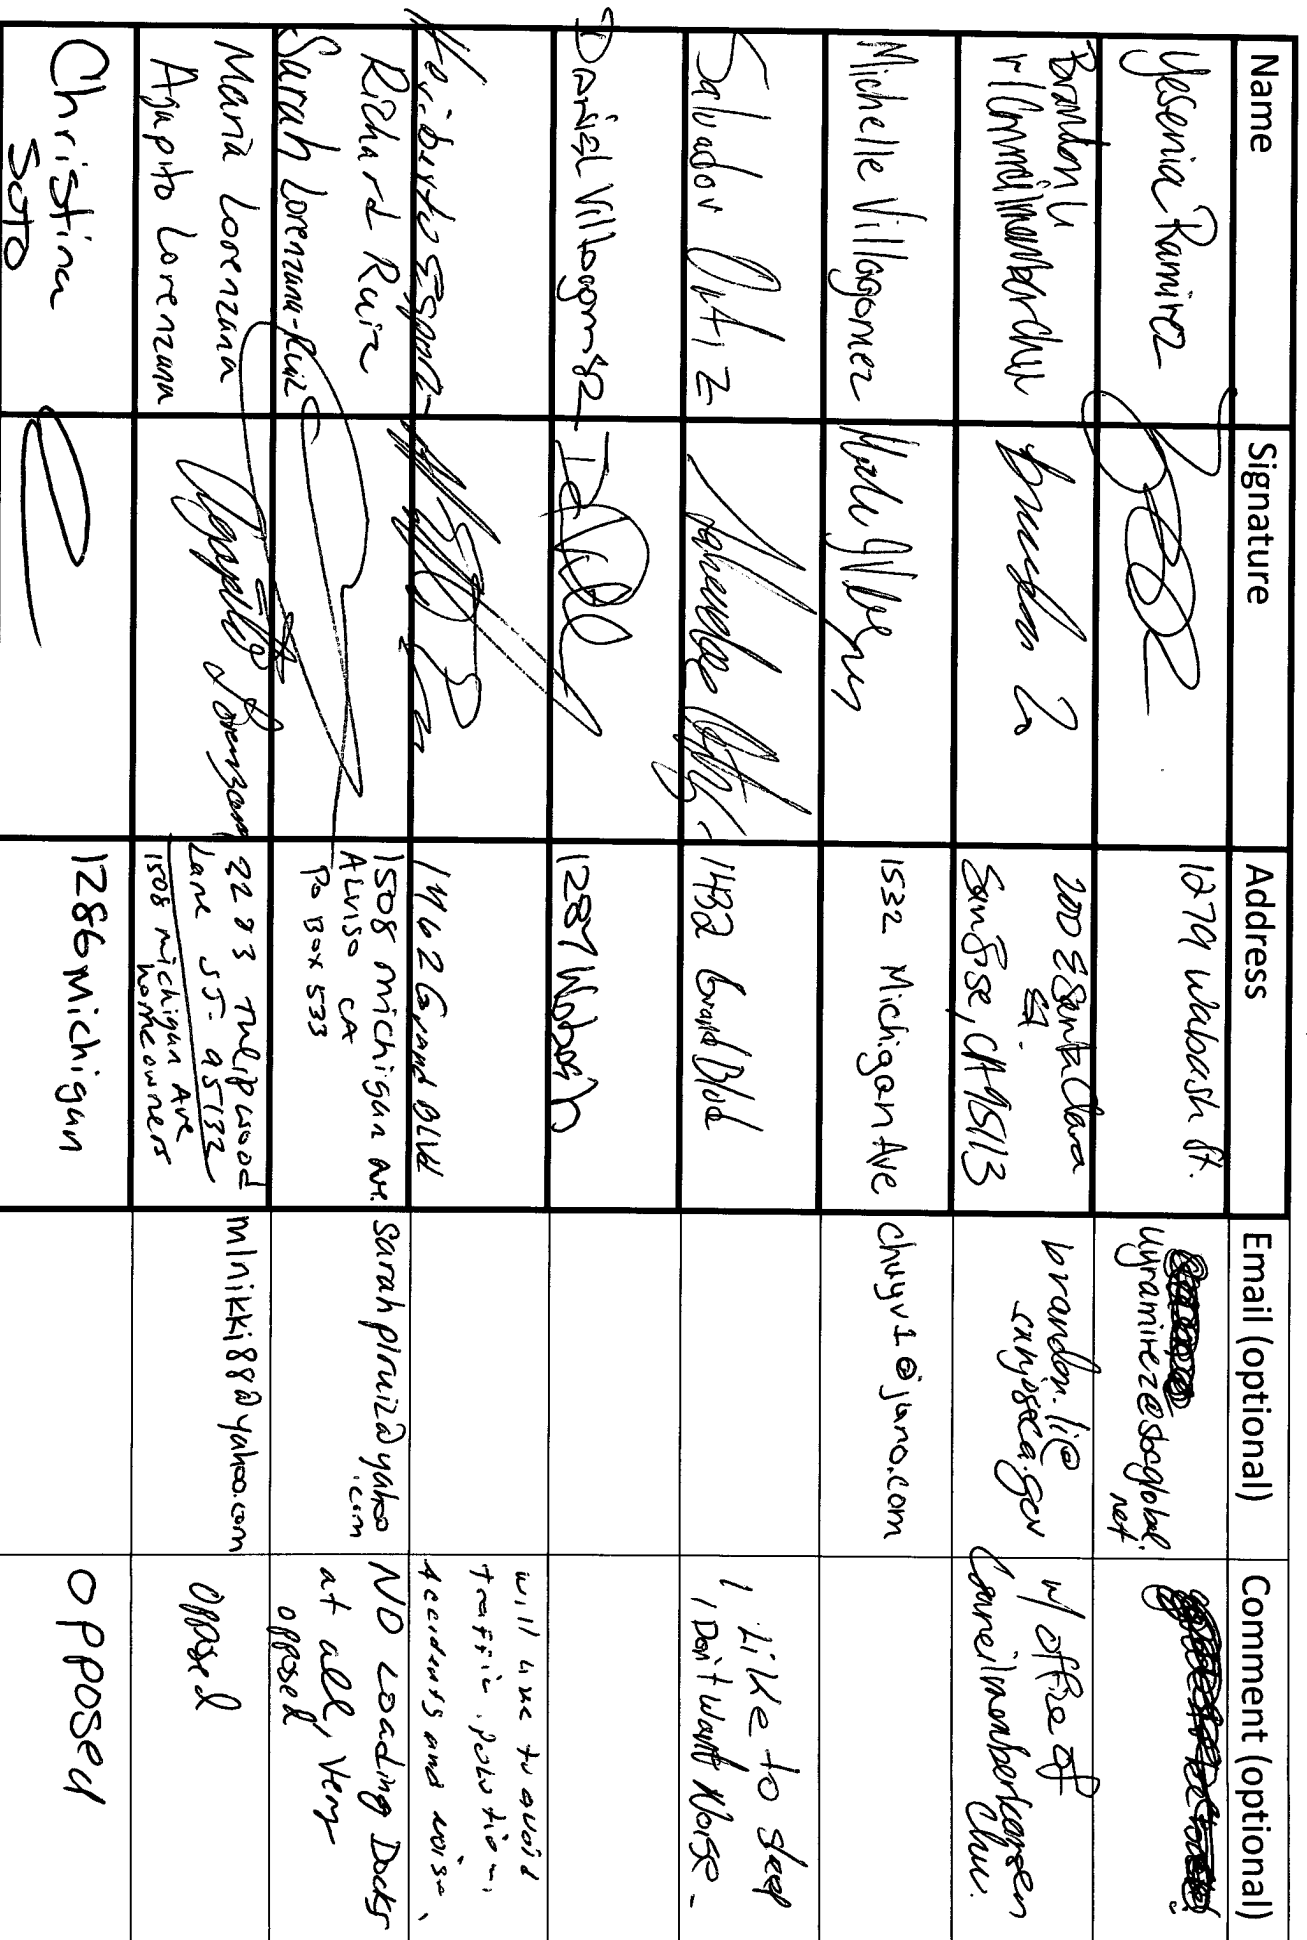 Name Signature Address Email (optional) Comment (optional)
Yesenia Ramirez
1279 Wabash St.
uyramirez@sbcglobal.
net
Brandon Li
w/ Councilmember Chu
200 E Santa Clara
St.
San Jose, CA 95113
brandon.li@
sanjoseca.gov
w/ office of
Councilmember Kansen
Chu.
Michelle Villagomez
1532 Michigan Ave
chuyv1@juno.com
Salvador Ortiz
1482 Grand Blvd
I Like to sleep
I Don't want Noise.
Daniel Villagomez
1287 Wabash
Heriberto
1462 Grand BLVD
will like to avoid
traffic, polution,
Accidents and noise,
Richard Ruiz
Sarah Lorenzana-Ruiz
1508 Michigan Ave.
Alviso CA
PO Box 533
sarahpiruiz@yahoo
.com
NO Loading Docks
at all, Very
opposed
Maria Lorenzana
Agapito Lorenzana
Agapito Lorenzana
2293 Tulipwood
Lane SJ- 95132
1508 Michigan Ave
homeowners
mlnikki88@yahoo.com
Opposed
Christina
Soto
1286 Michigan
Opposed